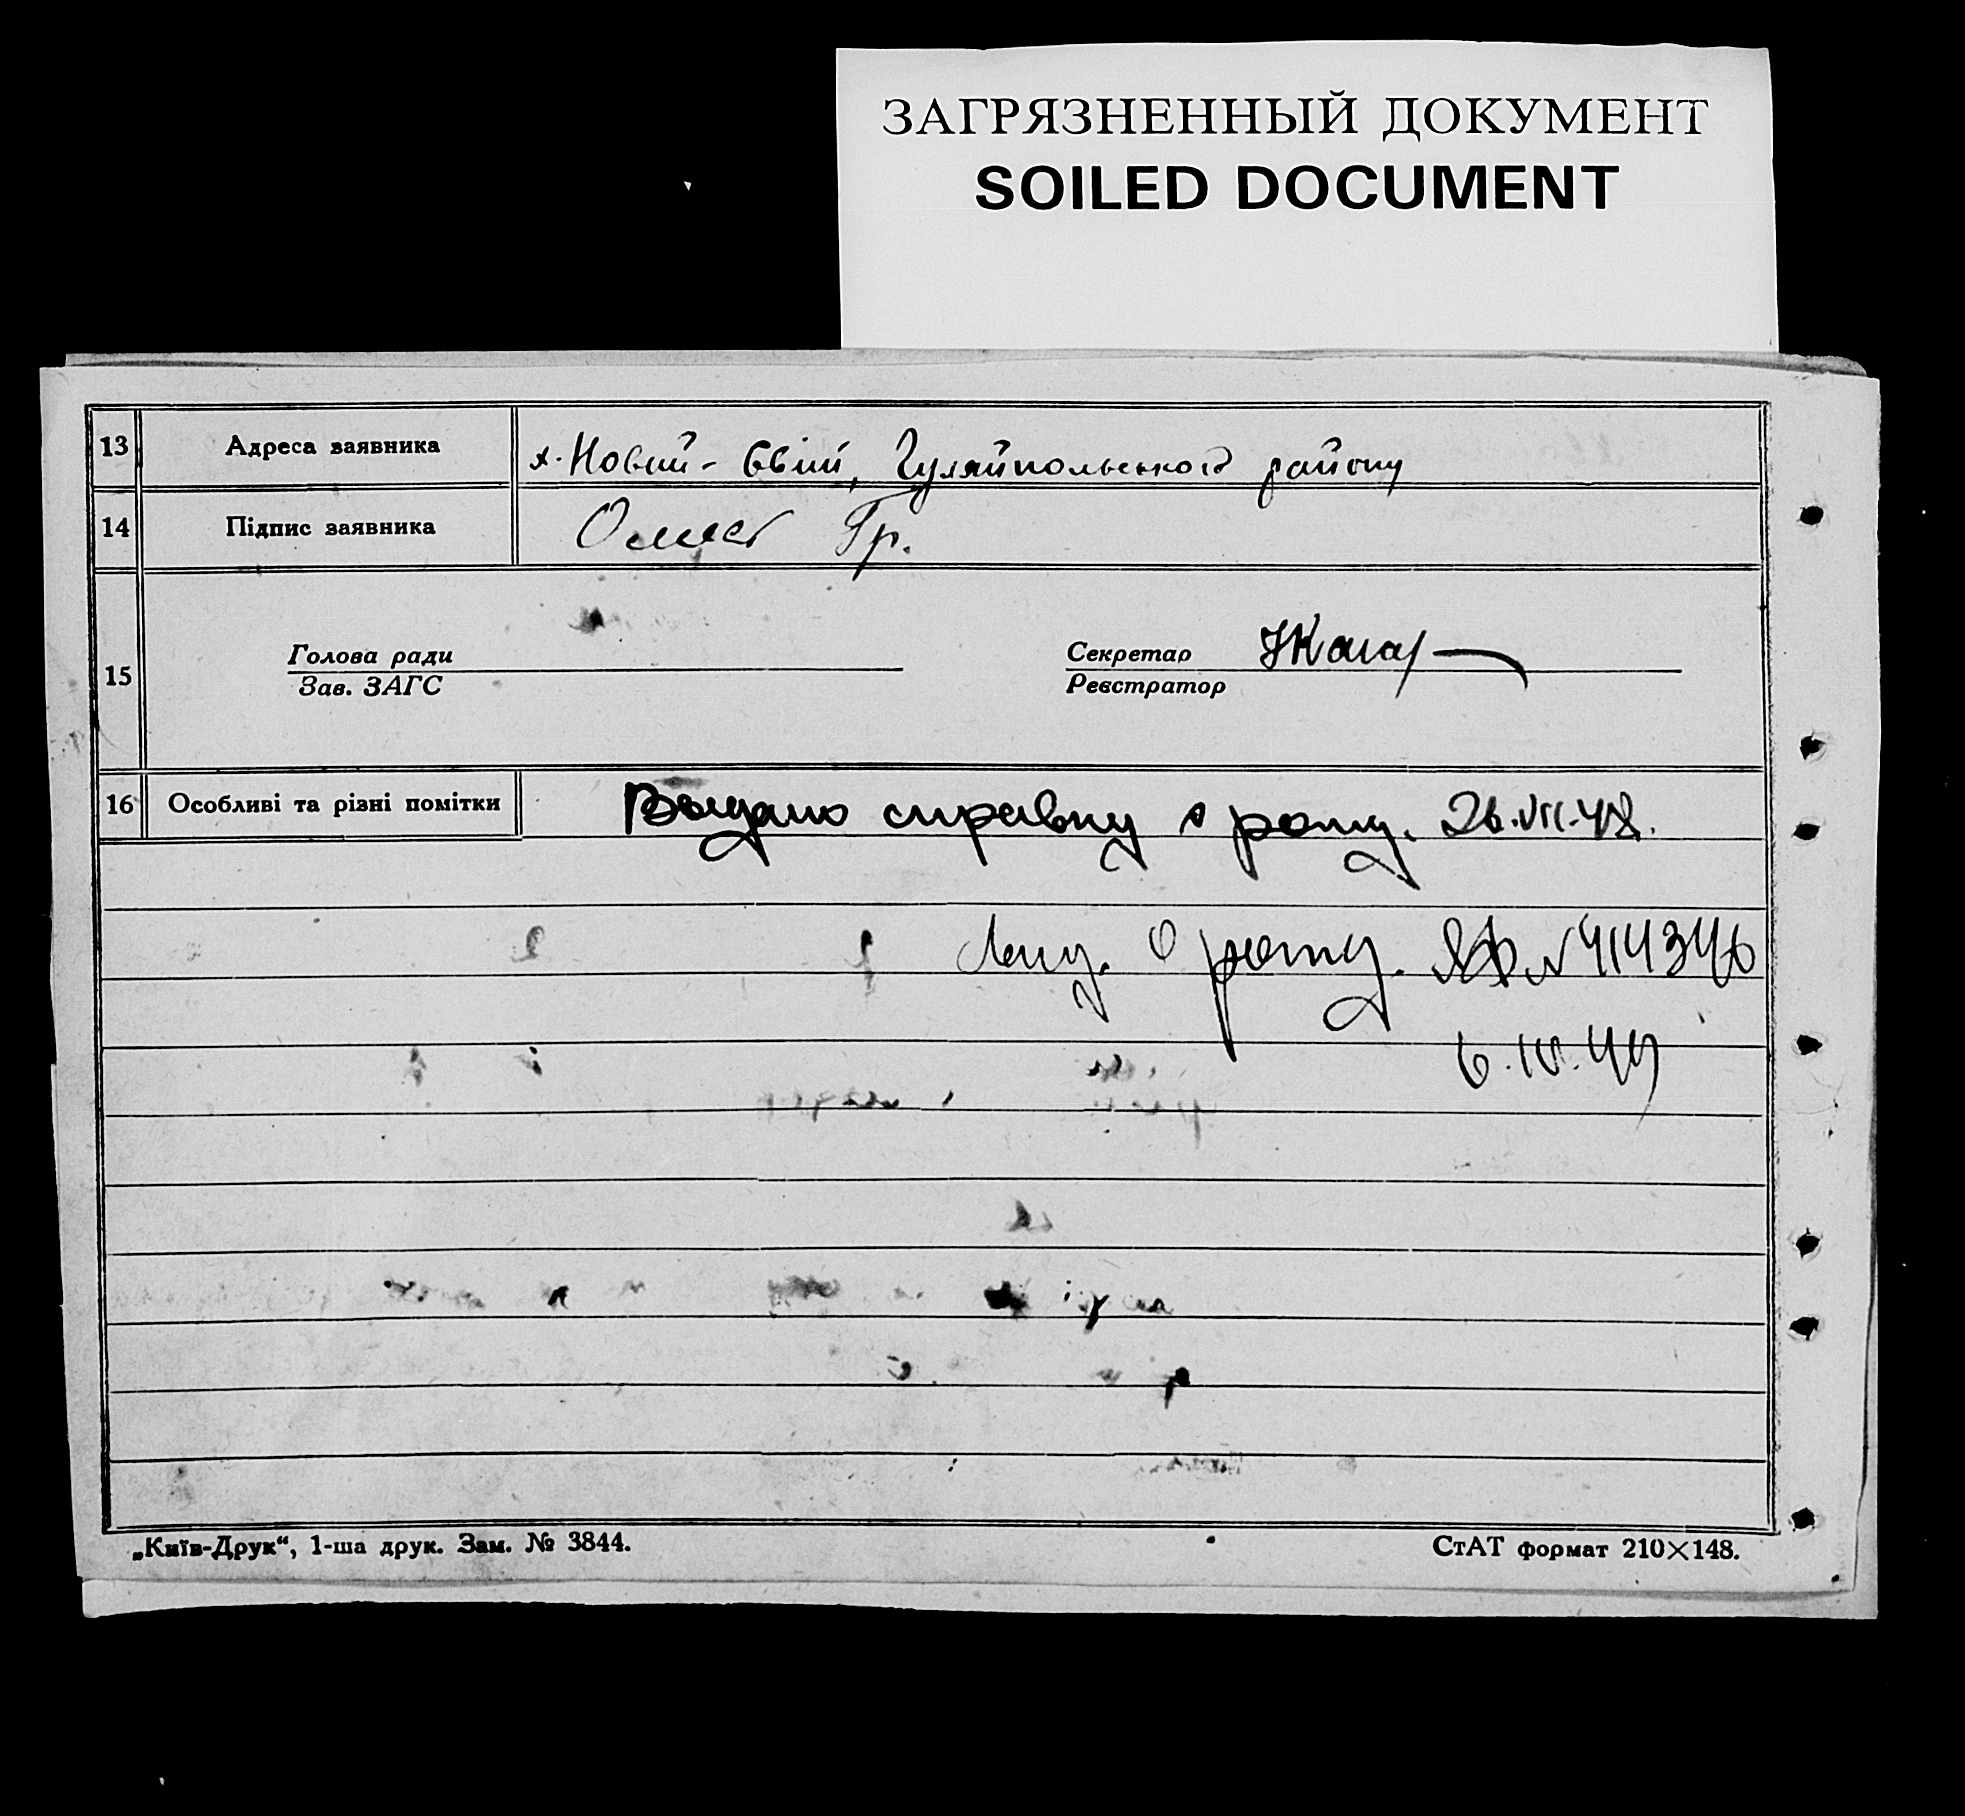 ЗАГРЯЗНЕННЫЙ ДОКУМЕНТ
SOILED DOCUMENT
13 Адреса заявника х. Новий- Гуляйпольського району
14 Підпис заявника Гр.
Голова ради Секретар
15
Зав. ЗАГС Реєстратор
16 Особливі та різні помітки Выдано справку о рожд. 26.VII.48.
о рожд. ЯФ № 414346
6.IV.49
„Київ-Друк“, 1-ша друк. Зам. № 3844. СтАТ формат 210×148.